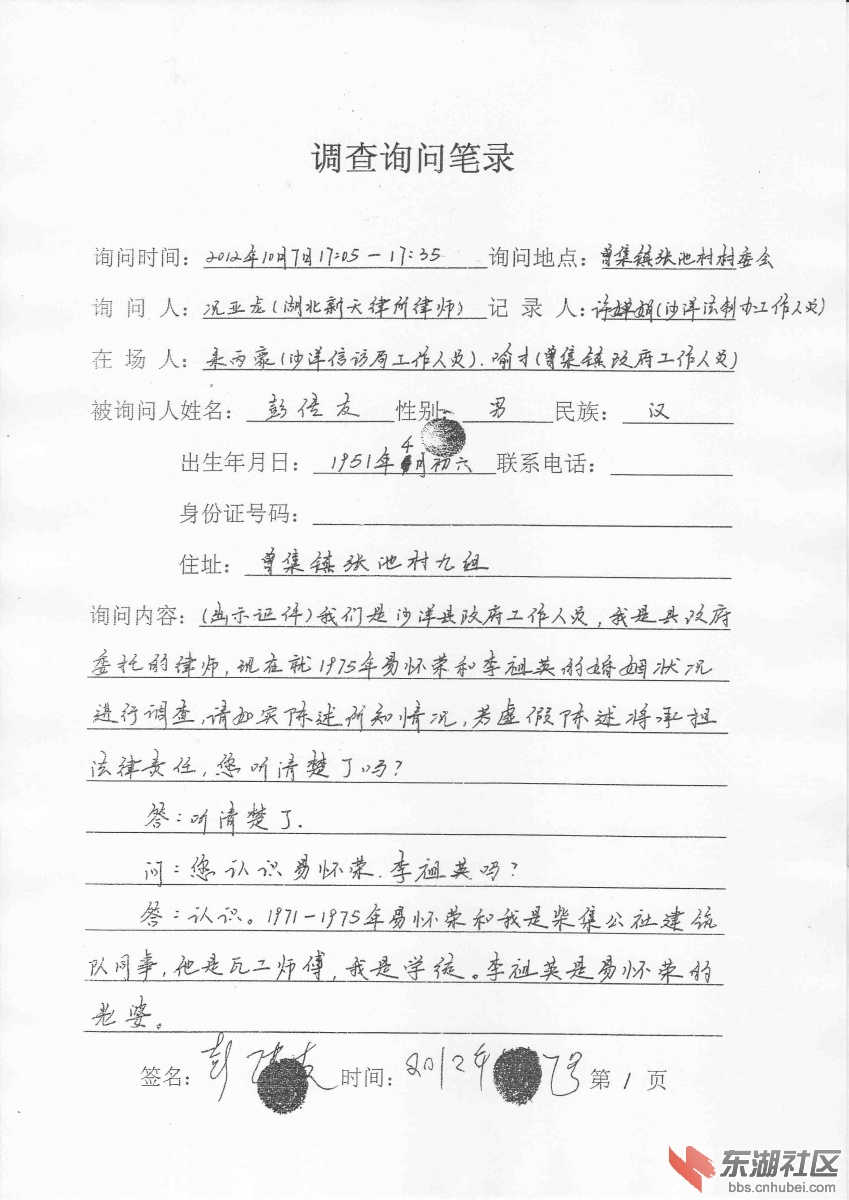 调查询问笔录
询问时间：2012年10月7日17:05－17:35 询问地点：曾集镇张池村村委会
询 问 人：况亚龙（湖北新天律所律师） 记 录 人：许娟（沙洋法制办工作人员）
在 场 人：（沙洋信访局工作人员）.喻才（曾集镇政府工作人员）
被询问人姓名：彭佳友 性别：男 民族：汉
出生年月日：1951年4月初六 联系电话：
身份证号码：
住址：曾集镇张池村九组
询问内容：（出示证件）我们是沙洋县政府工作人员，我是县政府
委托的律师，现在就1975年易怀荣和李祖英的婚姻状况
进行调查，请如实陈述所知情况，若虚假陈述将承担
法律责任，您听清楚了吗？
答：听清楚了.
问：您认识易怀荣.李祖英吗？
答：认识。1971－1975年易怀荣和我是柴集公社建筑
队同事，他是瓦工师傅，我是学徒。李祖英是易怀荣的
老婆。
签名：彭 友 时间：2012年 7号 第 1 页
东湖社区
bbs.cnhubei.com